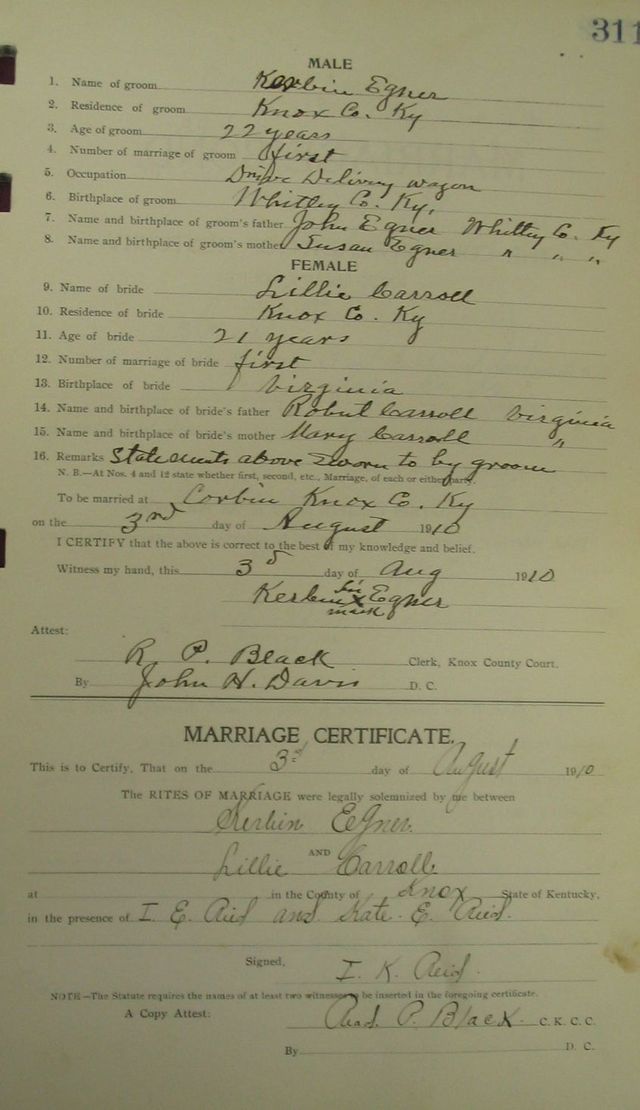 311
MALE
1. Name of groom Kerbin Egner
2. Residence of groom Knox Co. Ky
3. Age of groom 22 years
4. Number of marriage of groom first
5. Occupation Drive Delivery wagon
6. Birthplace of groom Whitley Co. Ky.
7. Name and birthplace of groom's father John Egner Whitley Co. Ky
8. Name and birthplace of groom's mother Susan Egner " " "
FEMALE
9. Name of bride Lillie Carroll
10. Residence of bride Knox Co. Ky
11. Age of bride 21 years
12. Number of marriage of bride first
13. Birthplace of bride Virginia
14. Name and birthplace of bride's father Robert Carroll Virginia
15. Name and birthplace of bride's mother Mary Carroll "
16. Remarks Statements above sworn to by groom
N. B.—At Nos. 4 and 12 state whether first, second, etc., Marriage, of each or either party.
To be married at Corbin Knox Co. Ky
on the 3rd day of August 1910
I CERTIFY that the above is correct to the best of my knowledge and belief.
Witness my hand, this 3d day of Aug 1910
Kerbin his x mark Egner
Attest:
R. P. Black Clerk, Knox County Court.
By John H. Davis D. C.
MARRIAGE CERTIFICATE.
This is to Certify, That on the 3d day of August 1910
The RITES OF MARRIAGE were legally solemnized by me between
Kerbin Egner
AND
Lillie Carroll
at in the County of Knox State of Kentucky,
in the presence of I. E. and Kate. E.
Signed, I. K.
NOTE—The Statute requires the names of at least two witnesses to be inserted in the foregoing certificate.
A Copy Attest: P. Black C. K. C. C.
By D. C.